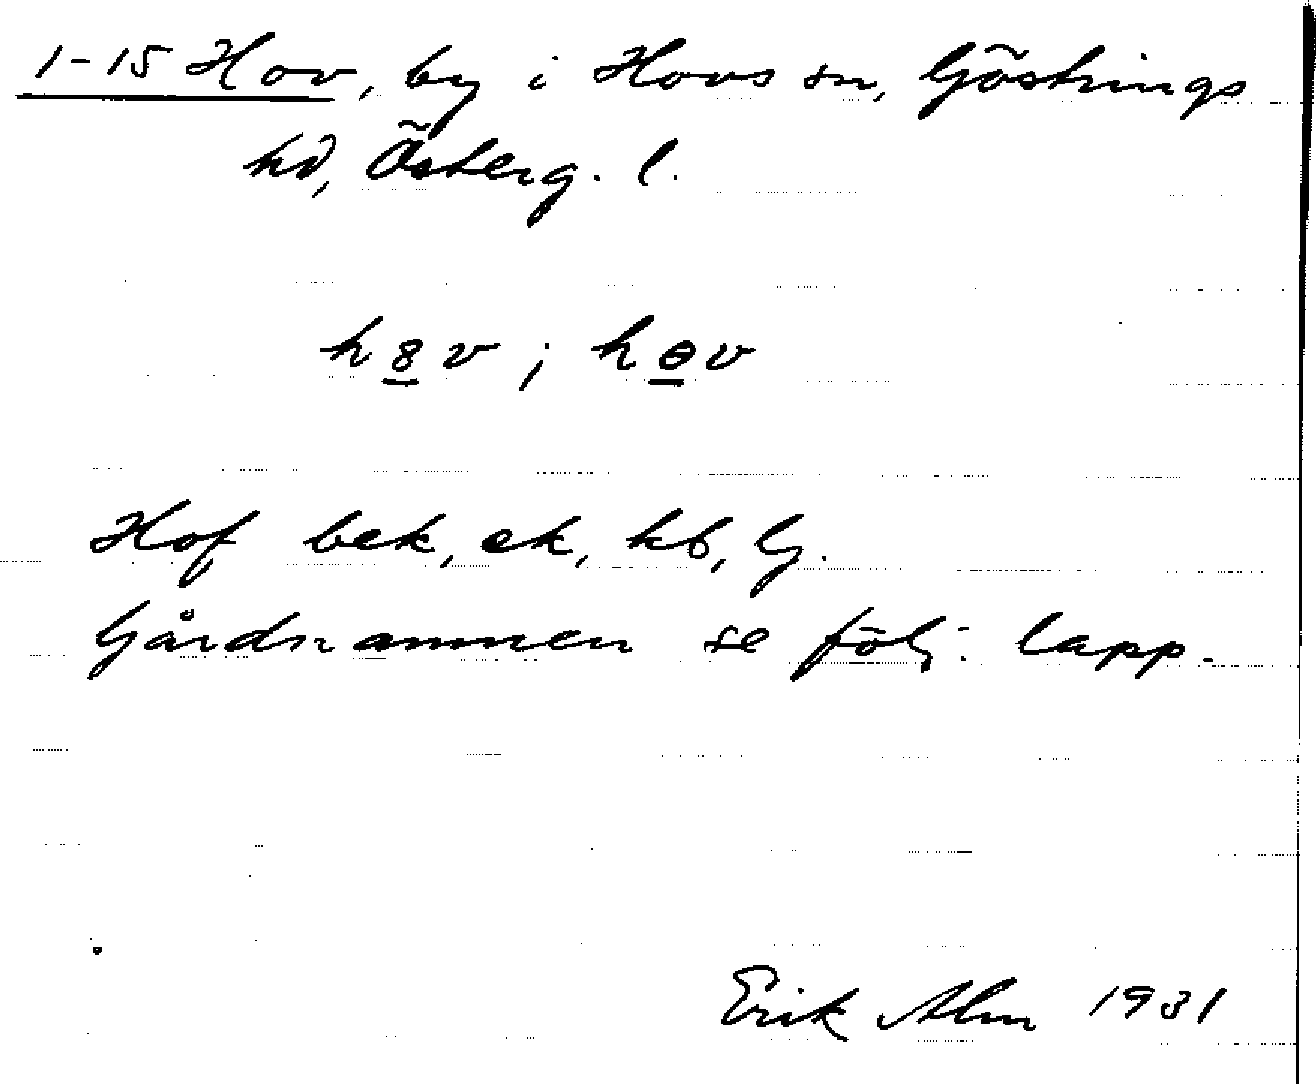 1-15 Hov, by i Hovs sn, Göstrings
hd, Österg. l.
h8̲v ; hɵ̲v
Hof bek, ek, kb, G.
Gårdsnamnen se följ. lapp.
Erik Alm 1931